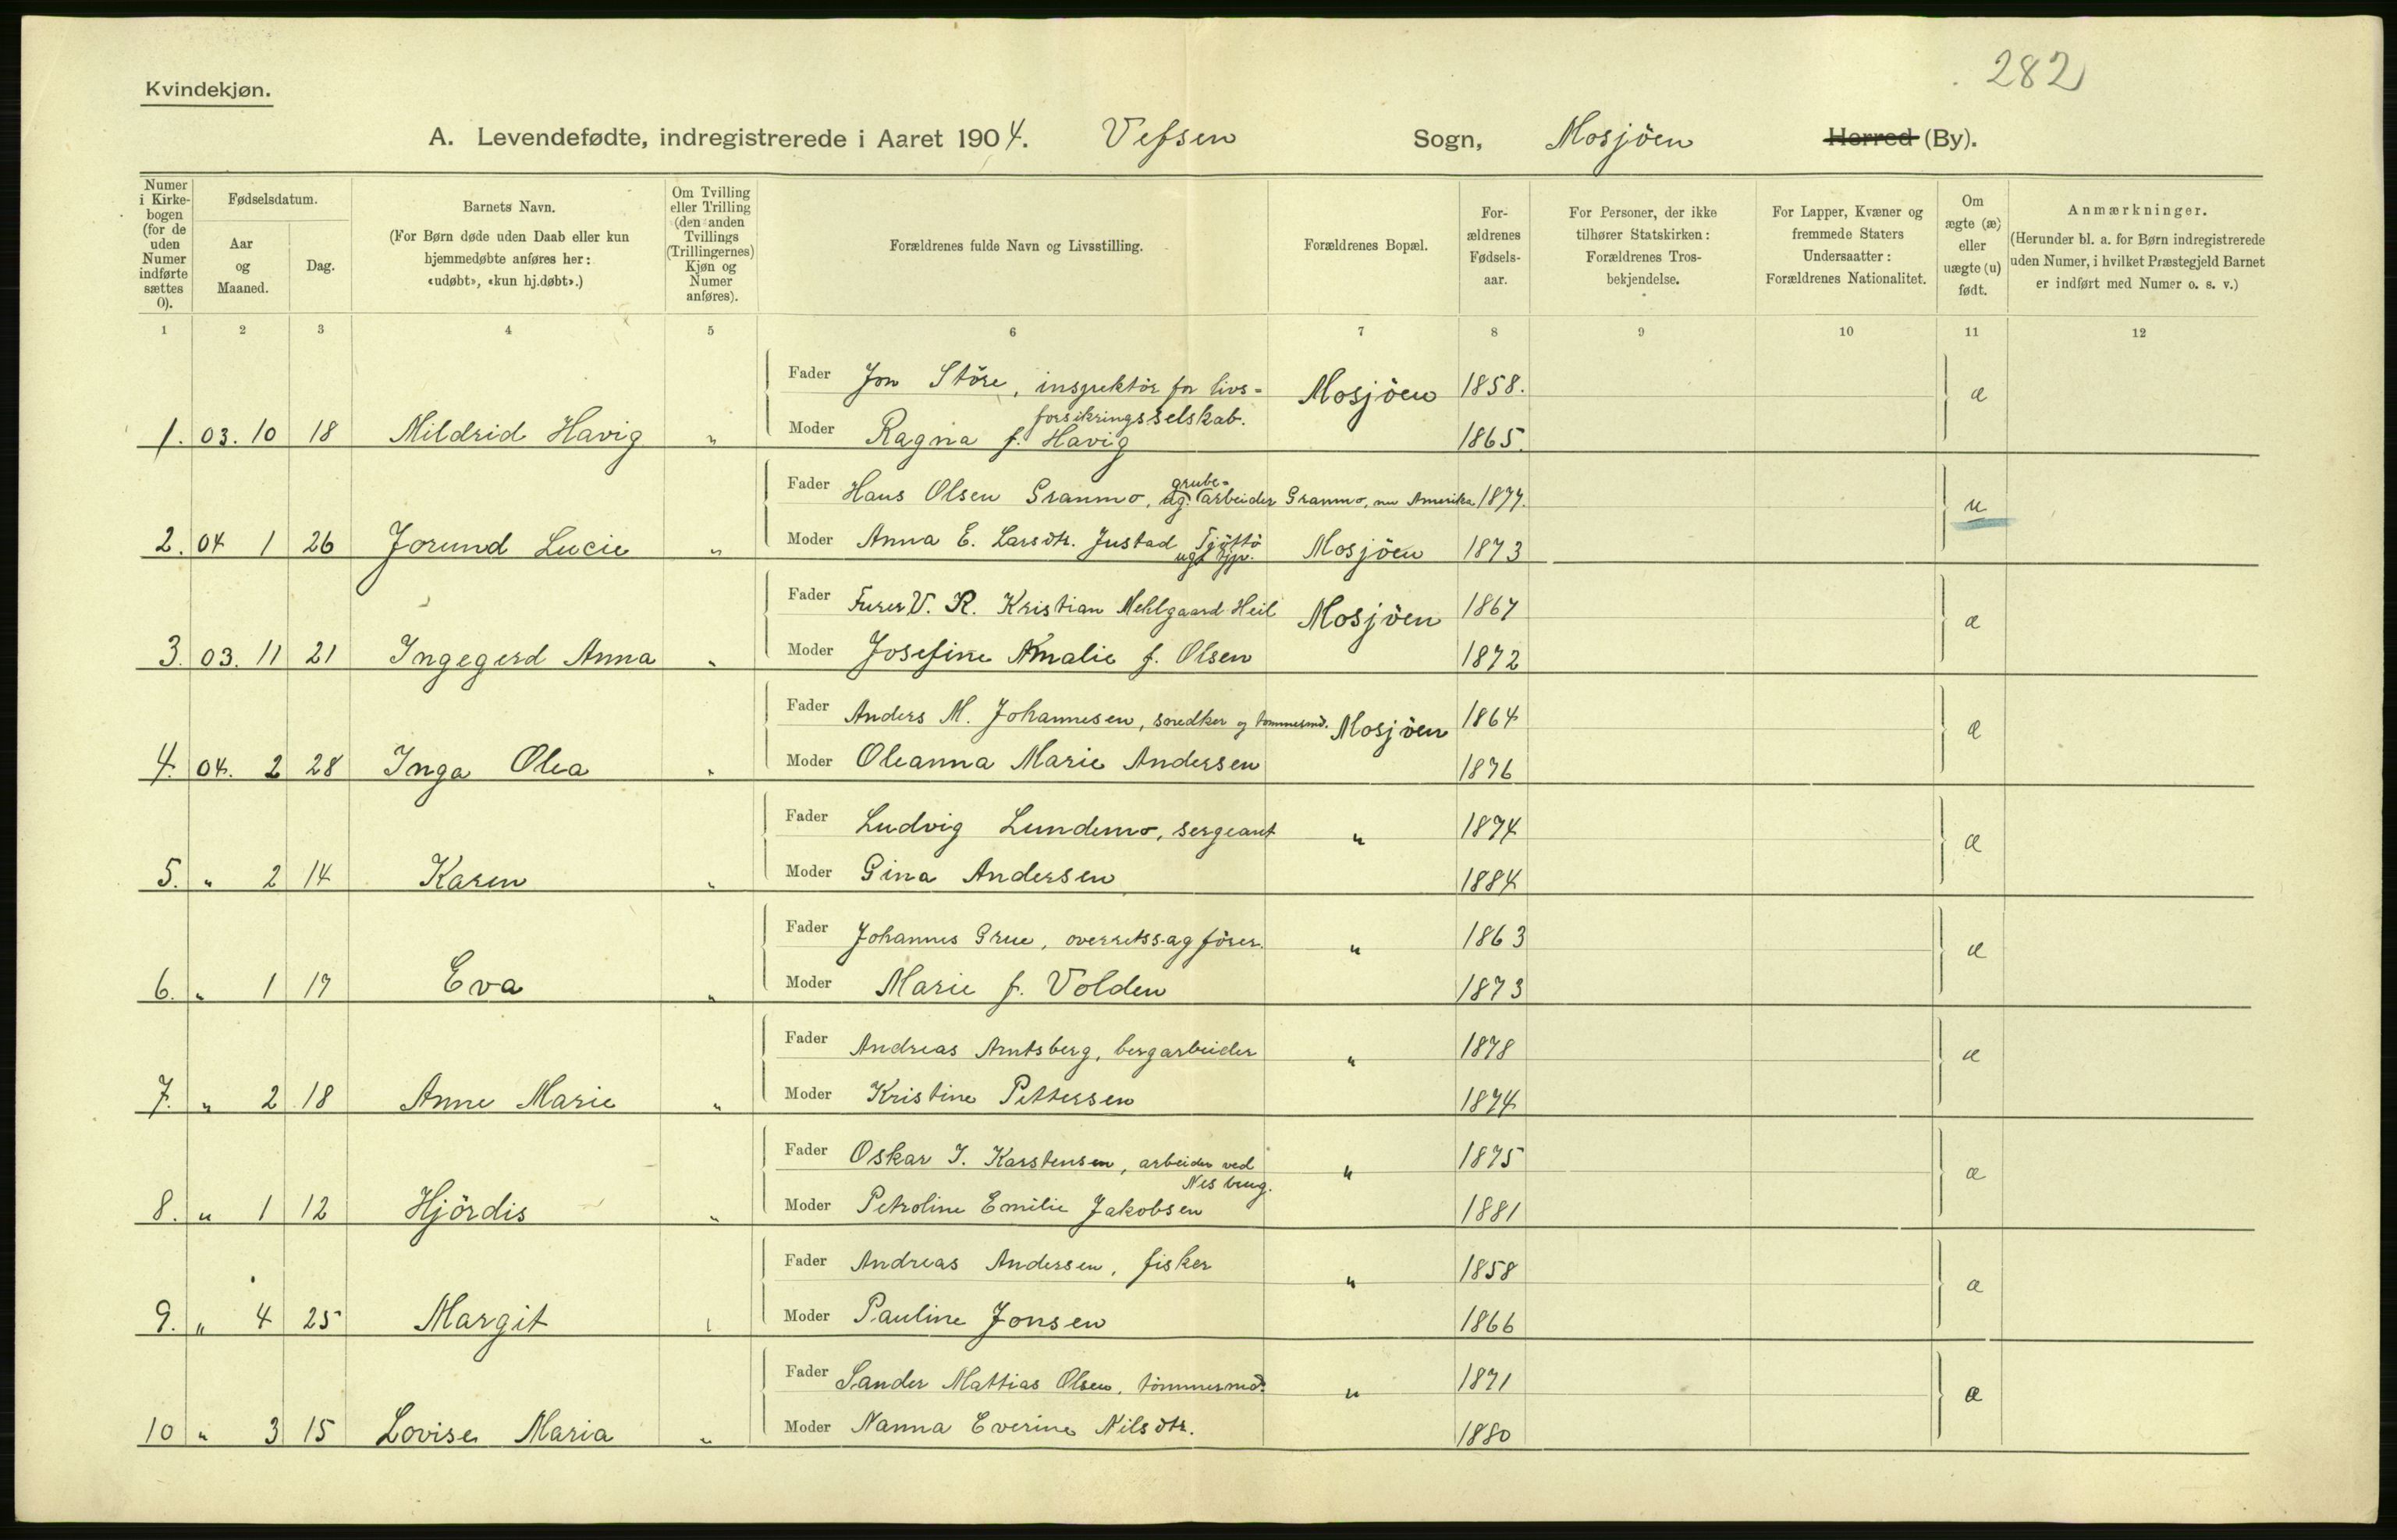 282
Kvindekjøn.
A. Levendefødte, indregistrerede i Aaret 1904. Vefsen Sogn, Mosjöen Herred (By).
Numer i Kirke-bogen (for de uden Numer indførte sættes 0).
Fødselsdatum.
Aar og Maaned.
Dag.
Barnets Navn.
(For Børn døde uden Daab eller kun hjemmedøbte anføres her: «udøbt», «kun hj.døbt».)
Om Tvilling eller Trilling (den anden Tvillings (Trillingernes) Kjøn og Numer anføres).
Forældrenes fulde Navn og Livsstilling.
Forældrenes Bopæl.
For-ældrenes Fødsels-aar.
For Personer, der ikke tilhører Statskirken: Forældrenes Tros-bekjendelse.
For Lapper, Kvæner og fremmede Staters Undersaatter: Forældrenes Nationalitet.
Om ægte (æ) eller uægte (u) født.
Anmærkninger.
(Herunder bl. a. for Børn indregistrerede uden Numer, i hvilket Præstegjeld Barnet er indført med Numer o. s. v.)
1 2 3 4 5 6 7 8 9 10 11 12
Fader Jon Störe, inspektör for livs- Mosjöen 1858. æ
forsikringsselskab.
1. 03. 10 18 Mildrid Havig " Moder Ragna f. Havig 1865.
grube-
Fader Hans Olsen Granmo, ug. arbeider Granmo, nu Amerika 1877. u
2. 04 1 26 Jorund Lucie " Moder Anna E. Larsdtr. Justad Tjöttö Mosjöen 1873
ugt tjp.
Fader Furer V. R. Kristian Mehlgaard Heil Mosjöen 1867 æ
3. 03. 11 21 Ingegerd Anna " Moder Josefine Amalie f. Olsen 1872
Fader Anders M. Johannesen, snedker og tømmermd. Mosjöen 1864 æ
4. 04. 2 28 Inga Olea " Moder Oleanna Marie Andersen 1876
Fader Ludvig Lundemo, sergeant " 1874 æ
5. " 2 14 Karen " Moder Gina Andersen 1884
Fader Johannes Grue, overretssagförer. " 1863 æ
6. " 1 17 Eva " Moder Marie f. Volden 1873
Fader Andreas Arntsberg, bergarbeider " 1878 æ
7. " 2 18 Anne Marie " Moder Kristine Pettersen 1874
Fader Oskar I. Karstensen, arbeider ved " 1875 æ
Nes brug.
8. " 1 12 Hjördis " Moder Petroline Emilie Jakobsen 1881
Fader Andreas Andersen, fisker " 1858 æ
9. " 4 25 Margit " Moder Pauline Jonsen 1866
Fader Sander Mattias Olsen, tömmermd. " 1871 æ
10 " 3 15 Lovise Maria " Moder Nanna Everine Nilsdtr. 1880